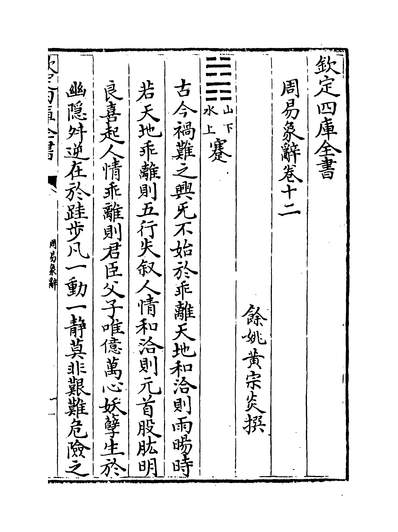 欽定四庫全書
周易象辭卷十二
餘姚黄宗炎撰
山下
水上
蹇
古今禍難之興旡不始於乖離天地和洽則雨暘時
若天地乖離則五行失叙人情和洽則元首股肱明
良喜起人情乖離則君臣父子唯億萬心妖孽生於
幽隱舛逆在於跬步凡一動一靜莫非艱難危險之
周易象辭